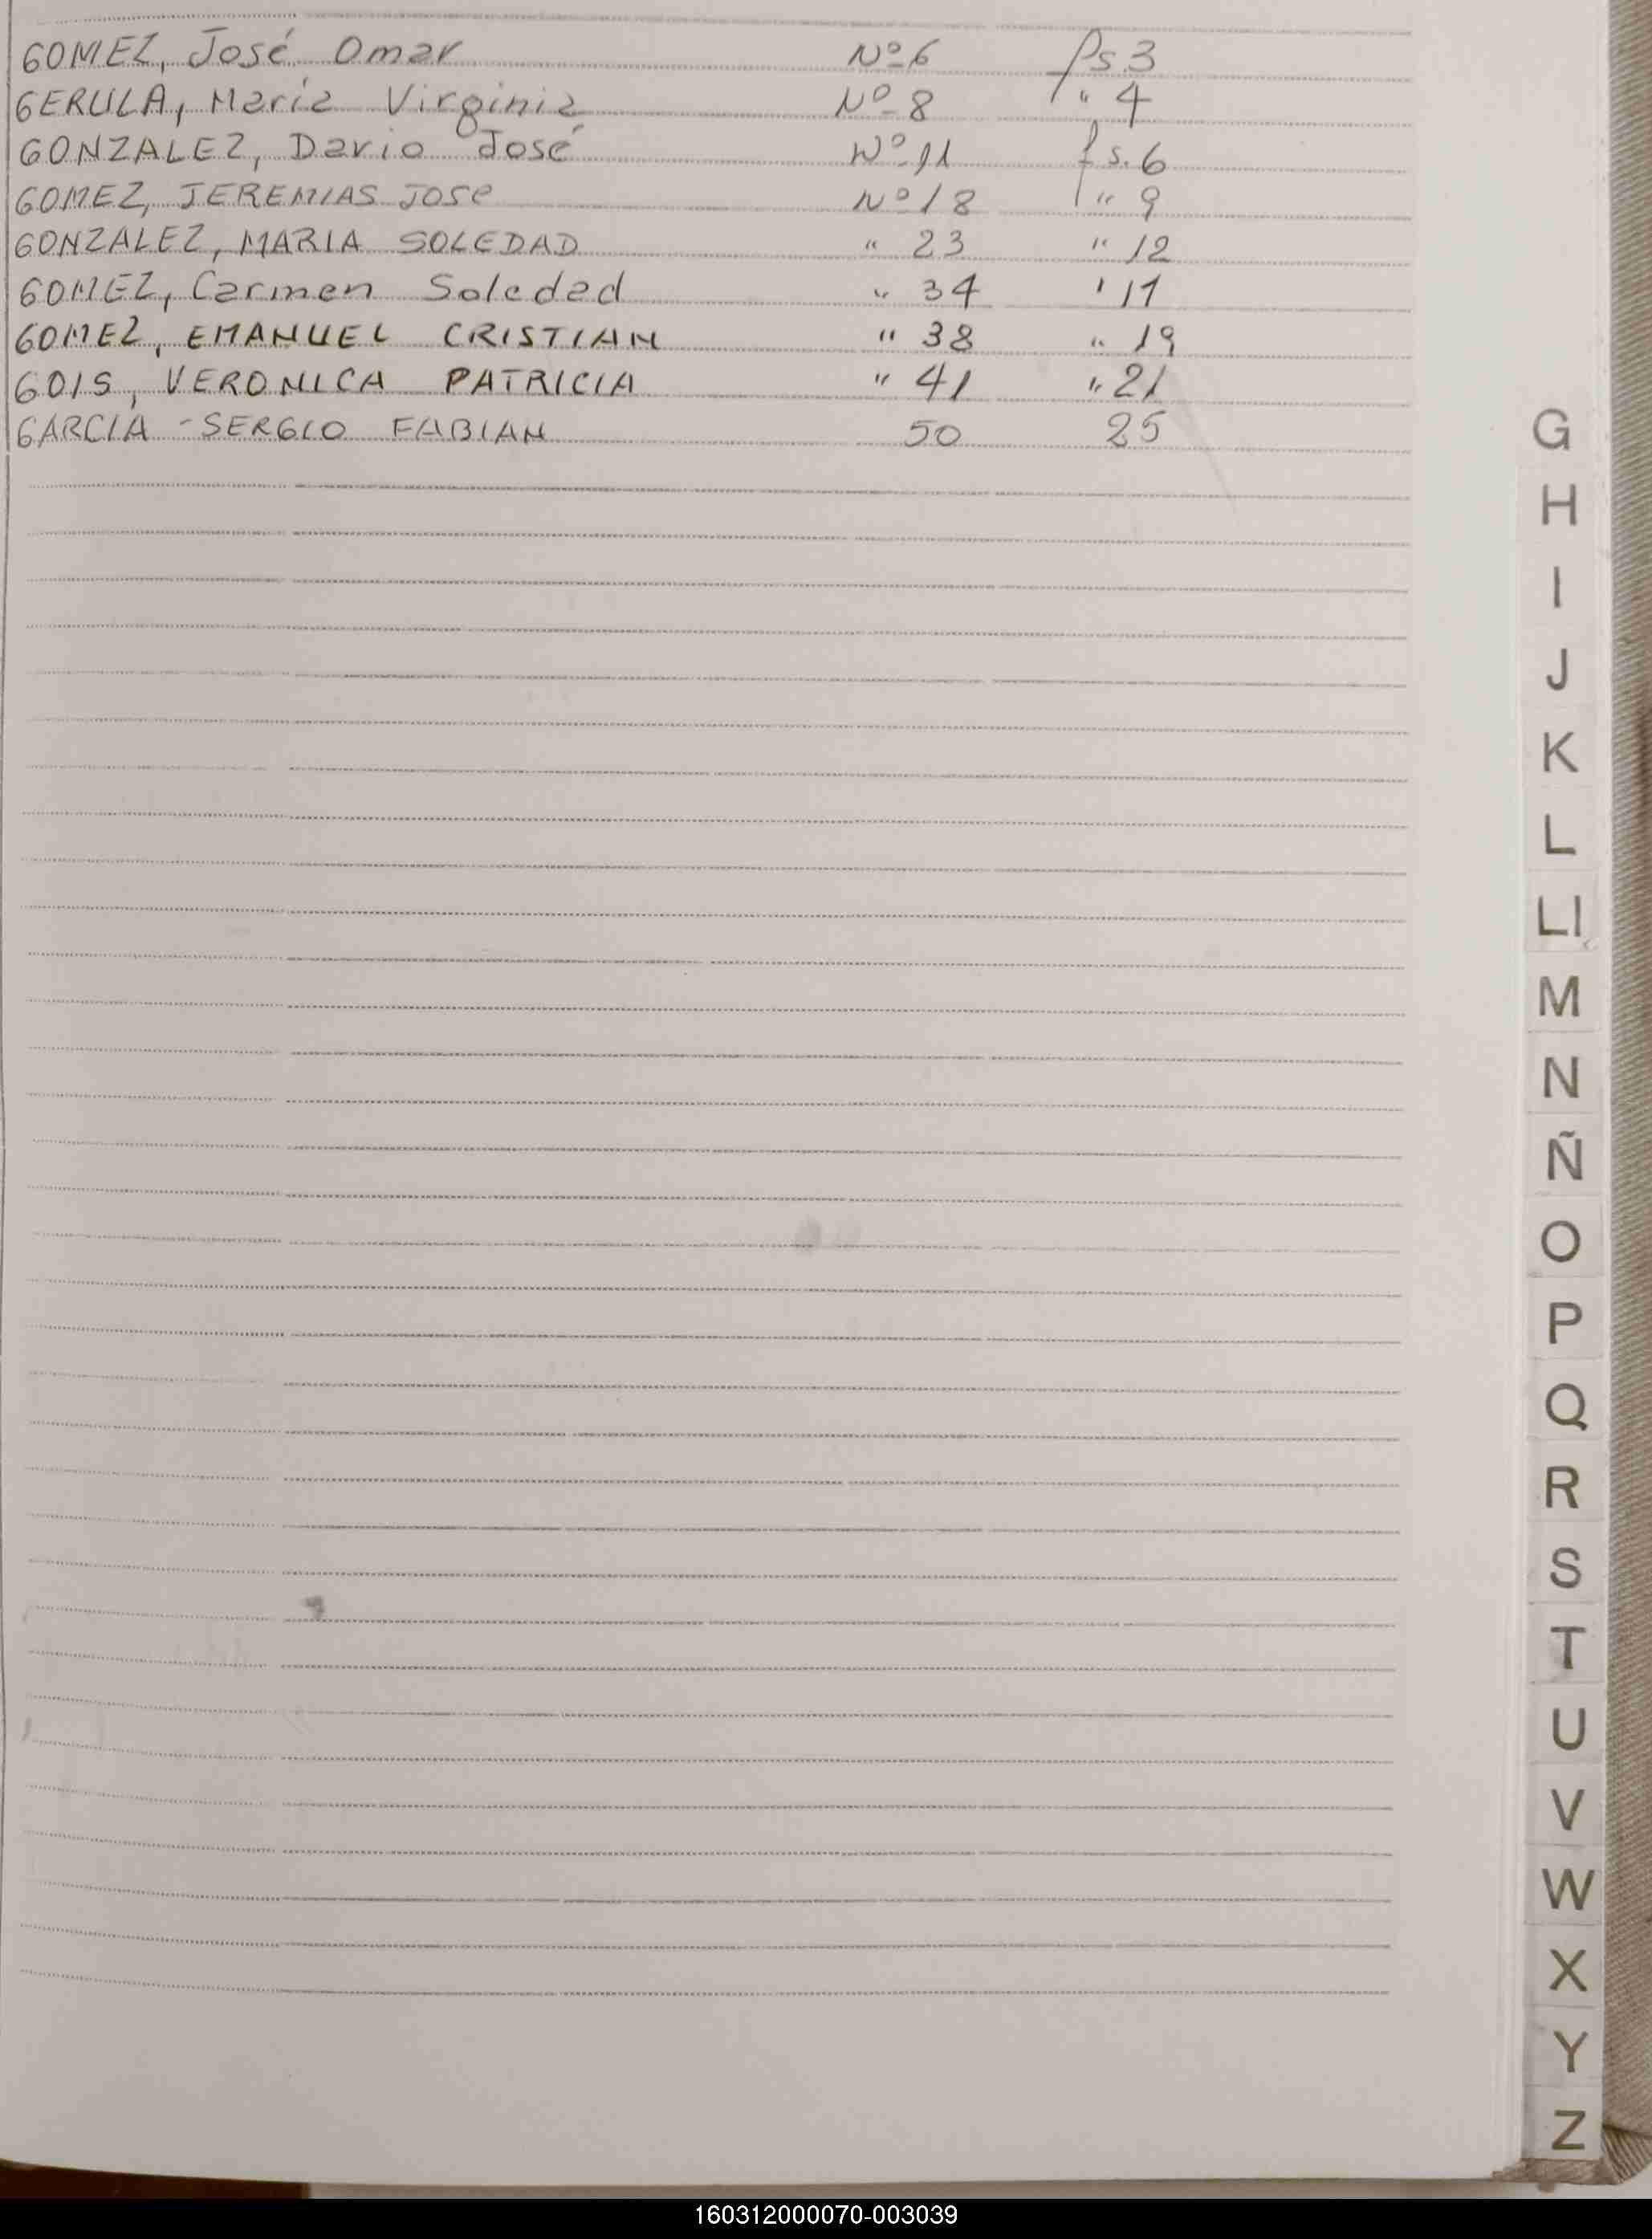 GOMEZ, José Omar Nº 6 fs 3
GERULA, María Virginia Nº 8 " 4
GONZALEZ, Dario José Nº 11 fs. 6
GOMEZ, JEREMIAS JOSE Nº 18 " 9
GONZALEZ, MARIA SOLEDAD " 23 " 12
GOMEZ, Carmen Soledad " 34 ' 17
GOMEZ, EMANUEL CRISTIAN " 38 " 19
GOIS, VERONICA PATRICIA " 41 " 21
GARCIA - SERGIO FABIAN 50 25
G
H
I
J
K
L
Ll
M
N
Ñ
O
P
Q
R
S
T
U
V
W
X
Y
Z
160312000070-003039